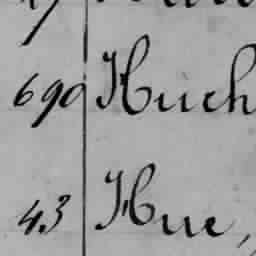 690 Huch
43 Hue,